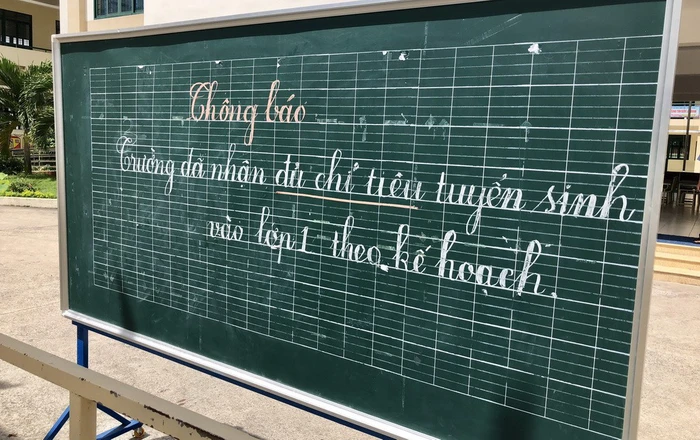 Thông báo
Trường đã nhận đủ chỉ tiêu tuyển sinh
vào lớp 1 theo kế hoạch.